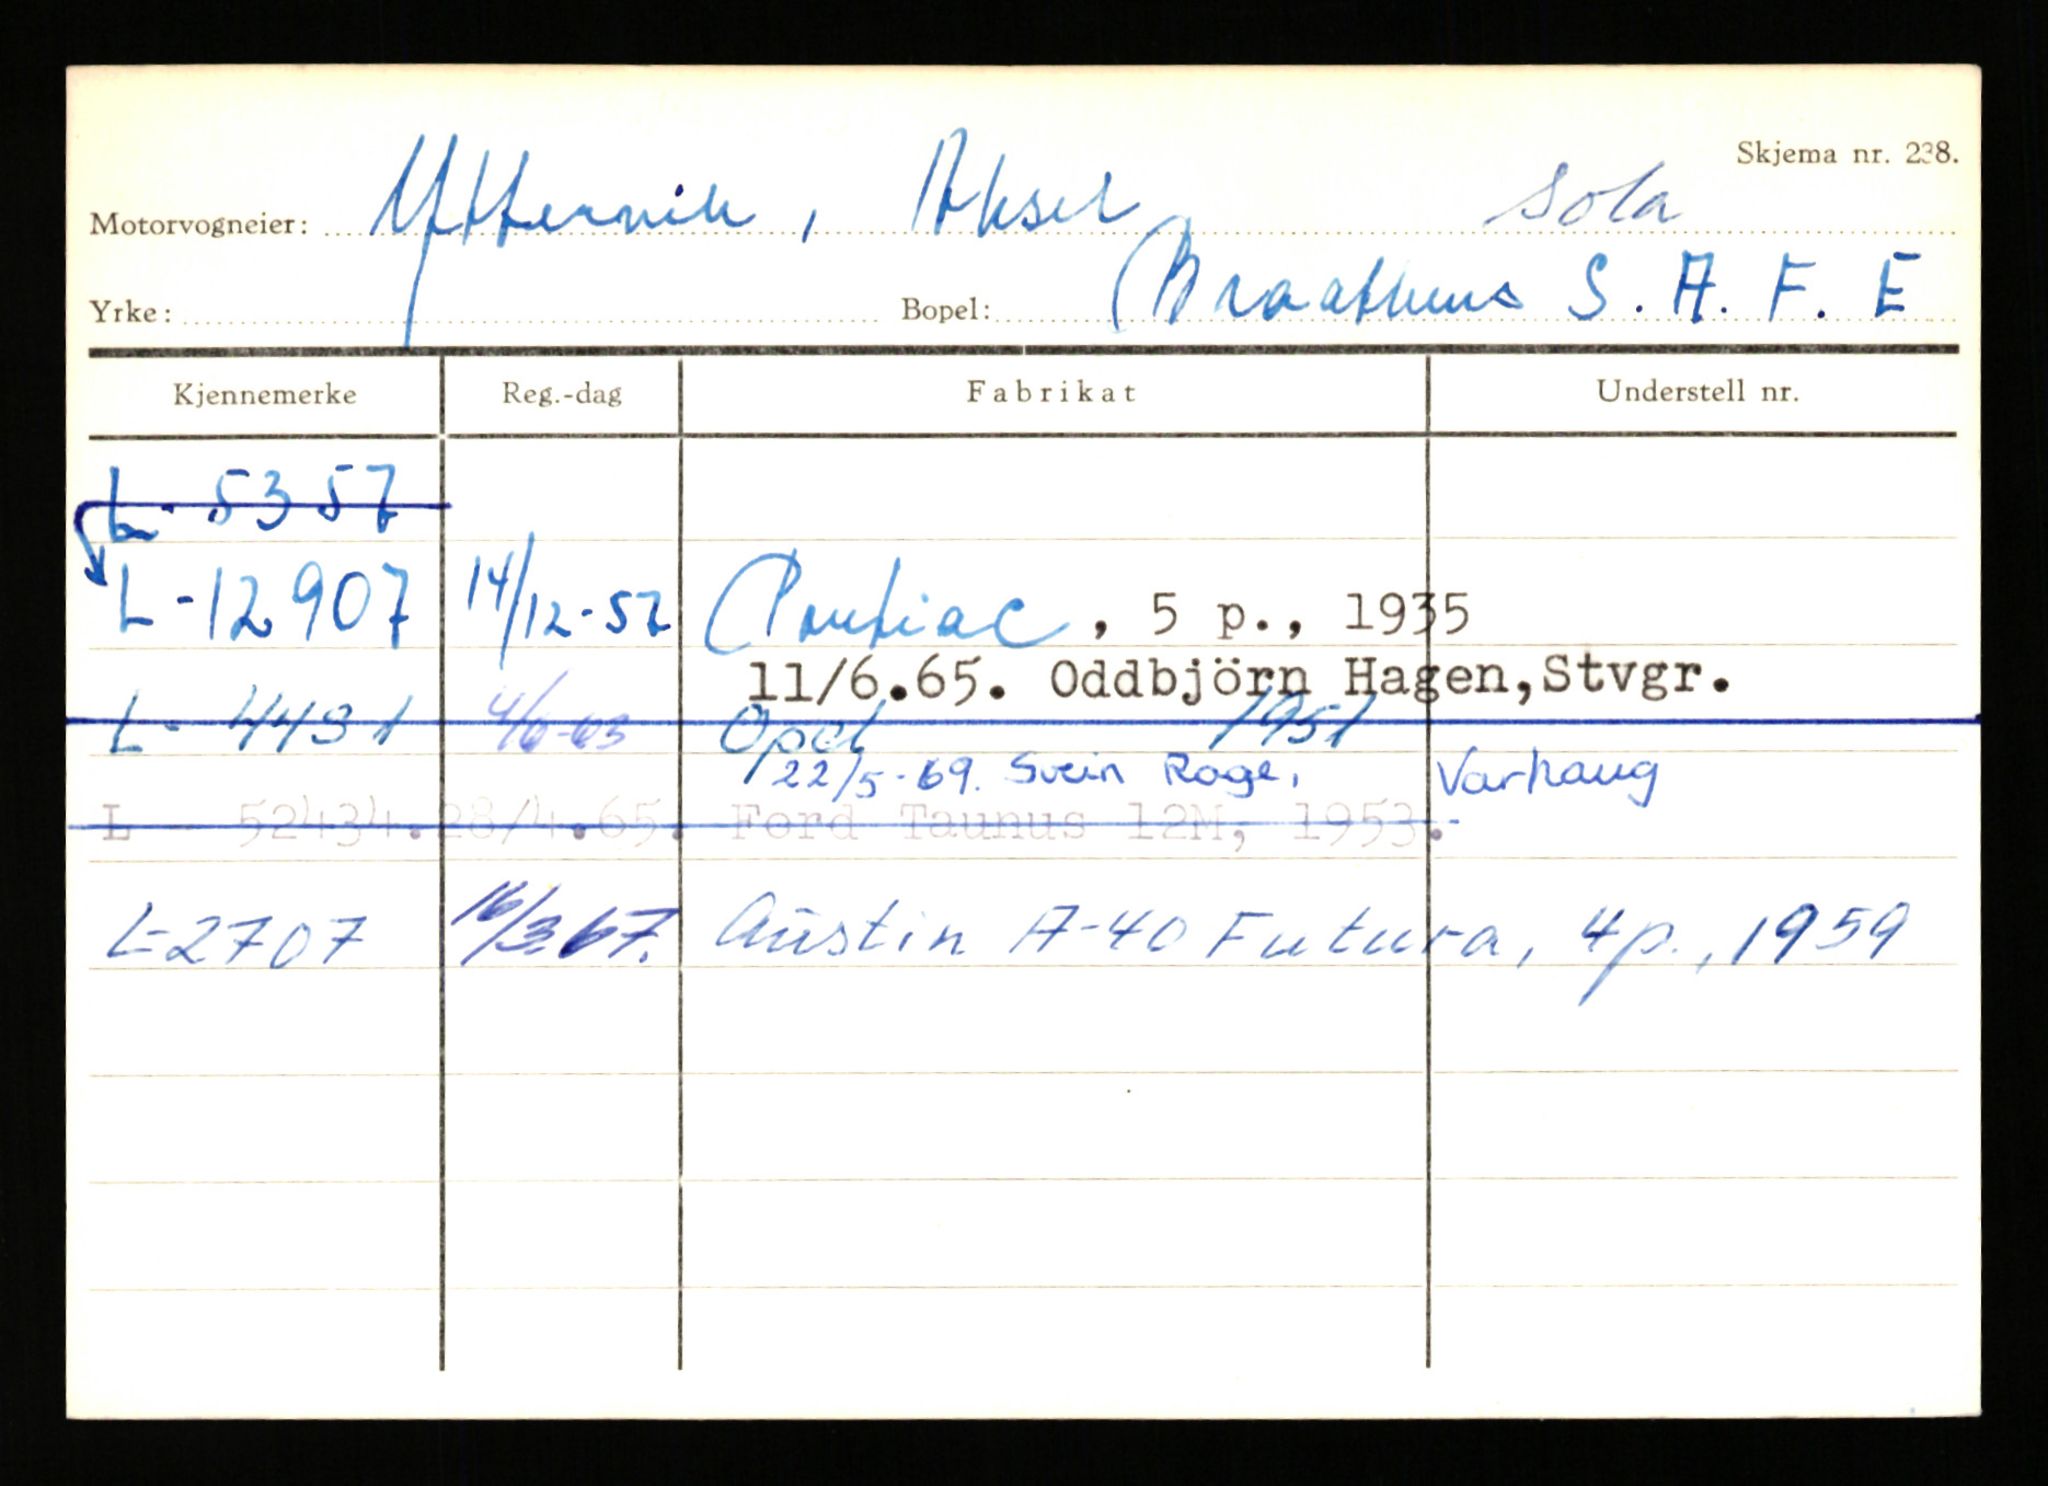 Skjema nr. 238.
Motorvogneier: Yttervik, Aksel Sola
Yrke: Bopel: Braathens S.A.F.E
Kjennemerke Reg.-dag Fabrikat Understell nr.
L- 5357
L-12907 14/12-57 Pontiac, 5 p., 1935
11/6.65. Oddbjörn Hagen,Stvgr.
L- 4491 4/6-63 Opel 1951
22/5-69. Svein Roge, Varhaug
L 52434. 28/4.65. Ford Taunus 12M, 1953.
L-2707 16/3.67. Austin A-40 Futura, 4p., 1959